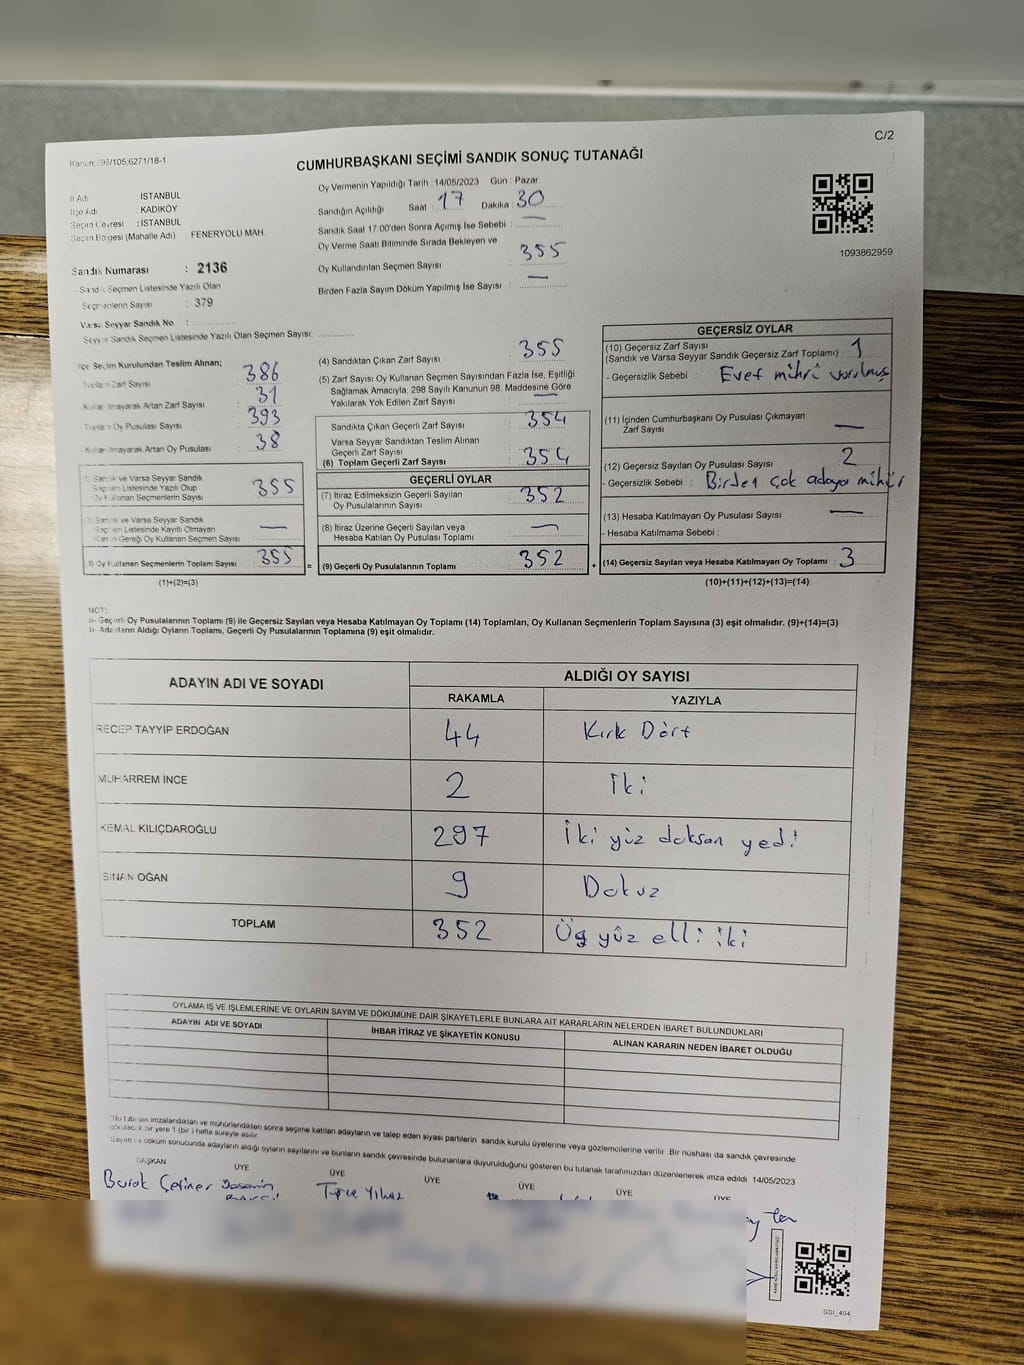 C/2
Kanun: 298/105,6271/18-1
CUMHURBAŞKANI SEÇİMİ SANDIK SONUÇ TUTANAĞI
İl Adı : İSTANBUL
İlçe Adı : KADIKÖY
Seçim Çevresi : İSTANBUL
Seçim Bölgesi (Mahalle Adı) : FENERYOLU MAH.
Sandık Numarası : 2136
- Sandık Seçmen Listesinde Yazılı Olan
Seçmenlerin Sayısı : 379
Varsa Seyyar Sandık No :
Seyyar Sandık Seçmen Listesinde Yazılı Olan Seçmen Sayısı:
Oy Vermenin Yapıldığı Tarih : 14/05/2023 Gün : Pazar
Sandığın Açıldığı Saat : 17 Dakika : 30
Sandık Saat 17:00'den Sonra Açılmış İse Sebebi : —
Oy Verme Saati Bitiminde Sırada Bekleyen ve
Oy Kullandırılan Seçmen Sayısı : 355
Birden Fazla Sayım Döküm Yapılmış İse Sayısı : —
1093862959
İlçe Seçim Kurulundan Teslim Alınan;
Toplam Zarf Sayısı : 386
Kullanılmayarak Artan Zarf Sayısı : 31
Toplam Oy Pusulası Sayısı : 393
- Kullanılmayarak Artan Oy Pusulası : 38
(1) Sandık ve Varsa Seyyar Sandık
Seçmen Listesinde Yazılı Olup
Oy Kullanan Seçmenlerin Sayısı : 355
(2) Sandık ve Varsa Seyyar Sandık
Seçmen Listesinde Kayıtlı Olmayan
Kanun Gereği Oy Kullanan Seçmen Sayısı : —
(3) Oy Kullanan Seçmenlerin Toplam Sayısı : 355
(1)+(2)=(3)
(4) Sandıktan Çıkan Zarf Sayısı : 355
(5) Zarf Sayısı Oy Kullanan Seçmen Sayısından Fazla İse, Eşitliği
Sağlamak Amacıyla, 298 Sayılı Kanunun 98. Maddesine Göre
Yakılarak Yok Edilen Zarf Sayısı : —
Sandıkta Çıkan Geçerli Zarf Sayısı : 354
Varsa Seyyar Sandıktan Teslim Alınan
Geçerli Zarf Sayısı :
(6) Toplam Geçerli Zarf Sayısı : 354
GEÇERLİ OYLAR
(7) İtiraz Edilmeksizin Geçerli Sayılan
Oy Pusulalarının Sayısı : 352
(8) İtiraz Üzerine Geçerli Sayılan veya
Hesaba Katılan Oy Pusulası Toplamı : —
= (9) Geçerli Oy Pusulalarının Toplamı : 352
GEÇERSİZ OYLAR
(10) Geçersiz Zarf Sayısı
(Sandık ve Varsa Seyyar Sandık Geçersiz Zarf Toplamı) : 1
- Geçersizlik Sebebi : Evet mihrü vurulmuş
(11) İçinden Cumhurbaşkanı Oy Pusulası Çıkmayan
Zarf Sayısı : —
(12) Geçersiz Sayılan Oy Pusulası Sayısı : 2
- Geçersizlik Sebebi : Birden çok adaya mühür
(13) Hesaba Katılmayan Oy Pusulası Sayısı : —
- Hesaba Katılmama Sebebi :
+ (14) Geçersiz Sayılan veya Hesaba Katılmayan Oy Toplamı : 3
(10)+(11)+(12)+(13)=(14)
NOT:
a- Geçerli Oy Pusulalarının Toplamı (9) ile Geçersiz Sayılan veya Hesaba Katılmayan Oy Toplamı (14) Toplamları, Oy Kullanan Seçmenlerin Toplam Sayısına (3) eşit olmalıdır. (9)+(14)=(3)
b- Adayların Aldığı Oyların Toplamı, Geçerli Oy Pusulalarının Toplamına (9) eşit olmalıdır.
ADAYIN ADI VE SOYADI
ALDIĞI OY SAYISI
RAKAMLA YAZIYLA
RECEP TAYYİP ERDOĞAN 44 Kırk Dört
MUHARREM İNCE 2 İki
KEMAL KILIÇDAROĞLU 297 İki yüz doksan yedi
SİNAN OĞAN 9 Dokuz
TOPLAM 352 Üç yüz elli iki
OYLAMA İŞ VE İŞLEMLERİNE VE OYLARIN SAYIM VE DÖKÜMÜNE DAİR ŞİKAYETLERLE BUNLARA AİT KARARLARIN NELERDEN İBARET BULUNDUKLARI
ADAYIN ADI VE SOYADI İHBAR İTİRAZ VE ŞİKAYETİN KONUSU ALINAN KARARIN NEDEN İBARET OLDUĞU
*Bu tutanak imzalandıktan ve mühürlendikten sonra seçime katılan adayların ve talep eden siyasi partilerin sandık kurulu üyelerine veya gözlemcilerine verilir. Bir nüshası da sandık çevresinde
görülecek bir yere 1 (bir) hafta süreyle asılır.
Sayım ve döküm sonucunda adayların aldığı oyların sayılarını ve bunların sandık çevresinde bulunanlara duyurulduğunu gösteren bu tutanak tarafımızdan düzenlenerek imza edildi. 14/05/2023
BAŞKAN ÜYE ÜYE ÜYE ÜYE ÜYE ÜYE
Burak Çetiner Yasemin Tuğçe Yılmaz
SSI_404